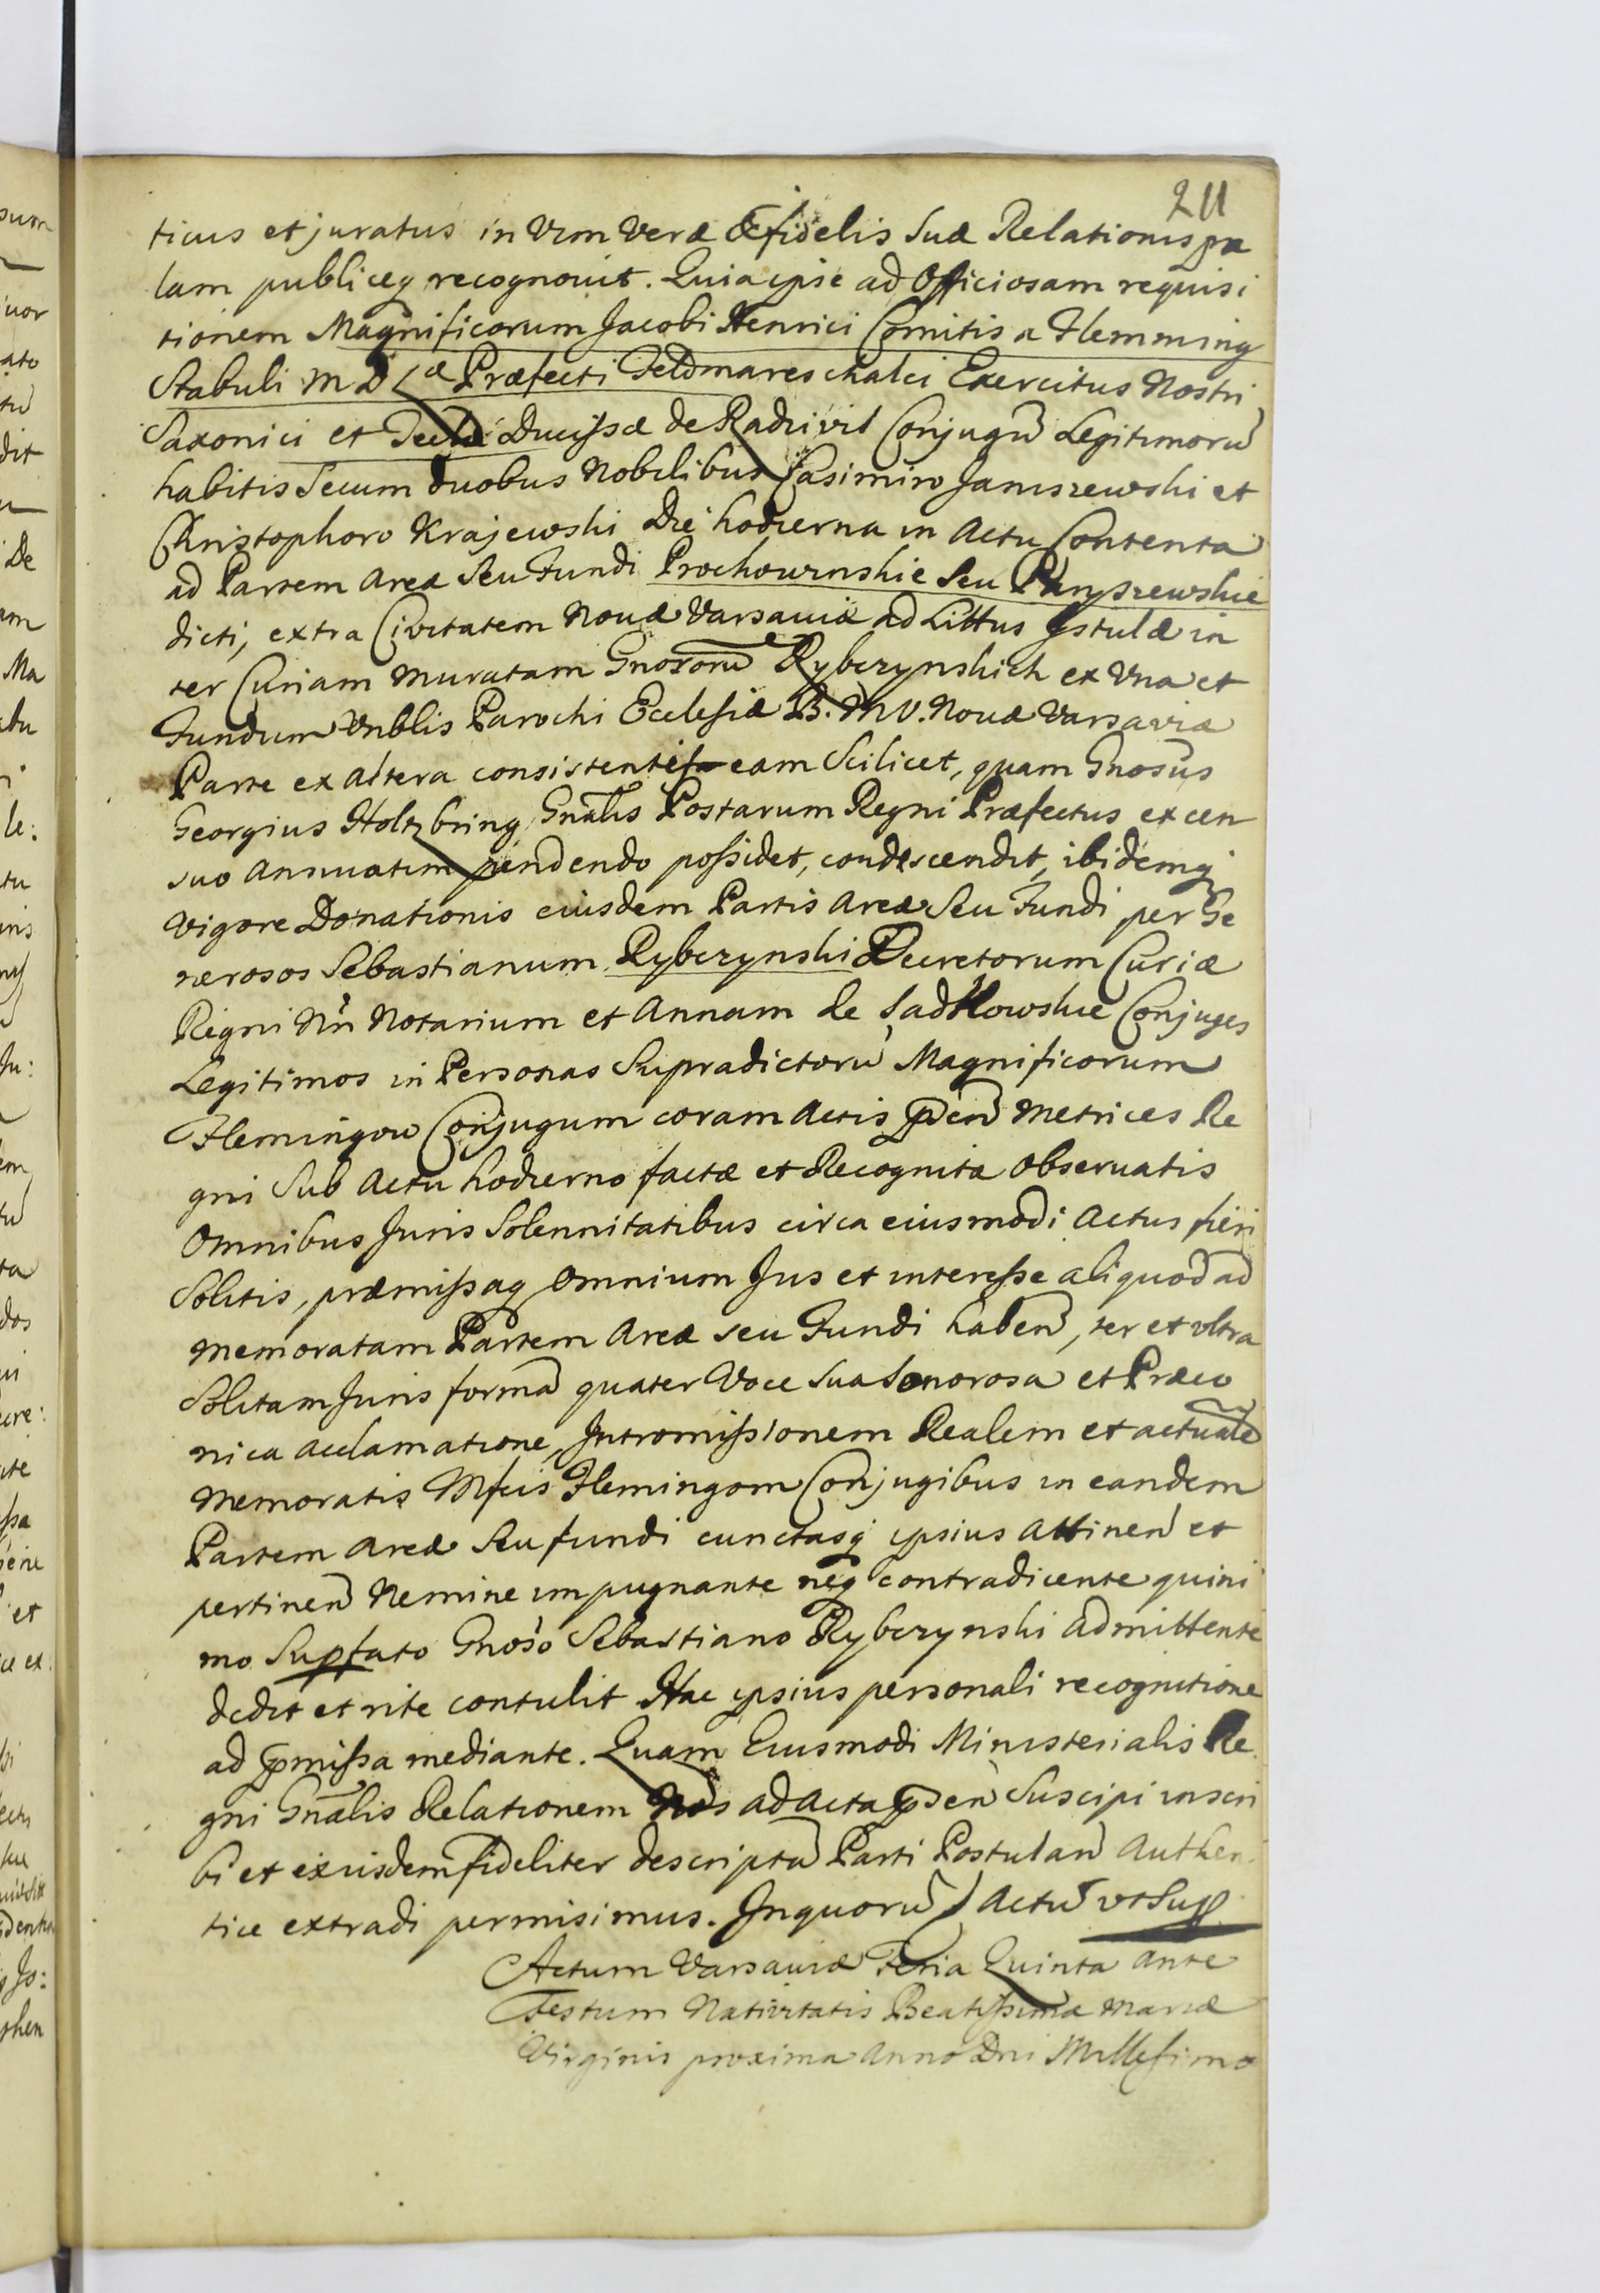 211
ticus et juratus in Vim Veræ & fidelis Suæ Relationis pa
lam publiceq recognovit. Quia ipse ad Officiosam requisi
tionem Magnificorum Jacobi Henrici Comitis a Flemming
Stabuli M D L Præfecti Feldmareschalci Exercitus Nostri
Saxonici et Teclæ Ducissæ de Radzivil Conjugū Legitimorū
habitis Secum duobus Nobilibus Casimiro Janiszewski et
Christophoro Krajewski Die hodierna in Actu Contenta
ad Partem Areæ Seu Fundi Prochownskie Seu Paryszewskie
dicti, extra Civitatem Novæ Varsaviæ ad Littus Istulæ in
ter Curiam Muratam Gnosorū Rybczynskich ex Vna et
Fundum Vnblis Parochi Ecclesiæ B. M V. Novæ Varsaviæ
Parte ex altera consistentis eam Scilicet, quam Gnosus
Georgius Holtzbring Gnālis Postarum Regni Præfectus ex cen
suo Annuatim pendendo possidet, condescendit, ibidemq
vigore Donationis eiusdem Partis Areæ Seu Fundi per Ge
nerosos Sebastianum Rybczynski Decretorum Curiæ
Regni Nri Notarium et Annam de Sadkowskie Conjuges
Legitimos in Personas Supradictorū Magnificorum
Flemingow Conjugum coram Actis pn̄tibus Metrices Re
gni Sub Actu hodierno factæ et Recognitæ observatis
Omnibus Juris Solennitatibus circa eiusmodi Actus fieri
Solitis, præmissaq Omnium Jus et interesse aliquod ad
memoratam Partem Areæ seu Fundi haben̄, ter et vltra
Solitam Juris formā quater Voce Sua Sonorosa et Præco
nica acclamatione, Intromissionem Realem et actualē
memoratis Mfcis Flemingom Conjugibus in eandem
Partem Areæ Seu fundi cunctasq ipsius Attinen̄ et
pertinen̄ Nemine impugnante neq contradicente quini
mo Supfato Gnoso Sebastiano Rybczynski Admittente
dedit et rite contulit Hac ipsius personali recognitione
ad pmissa mediante. Quam Eiusmodi Ministerialis Re
gni Gnālis Relationem Nos ad Acta pden Suscipi inscri
bi et exiisdem fideliter descriptā Parti Postulan̄ Authen
tice extradi permisimus. Inquorū) Actū vt Sup
Actum Varsaviæ Feria Quinta Ante
Festum Nativitatis Beatissimæ Mariæ
Virginis proxima Anno Dni Millesimo